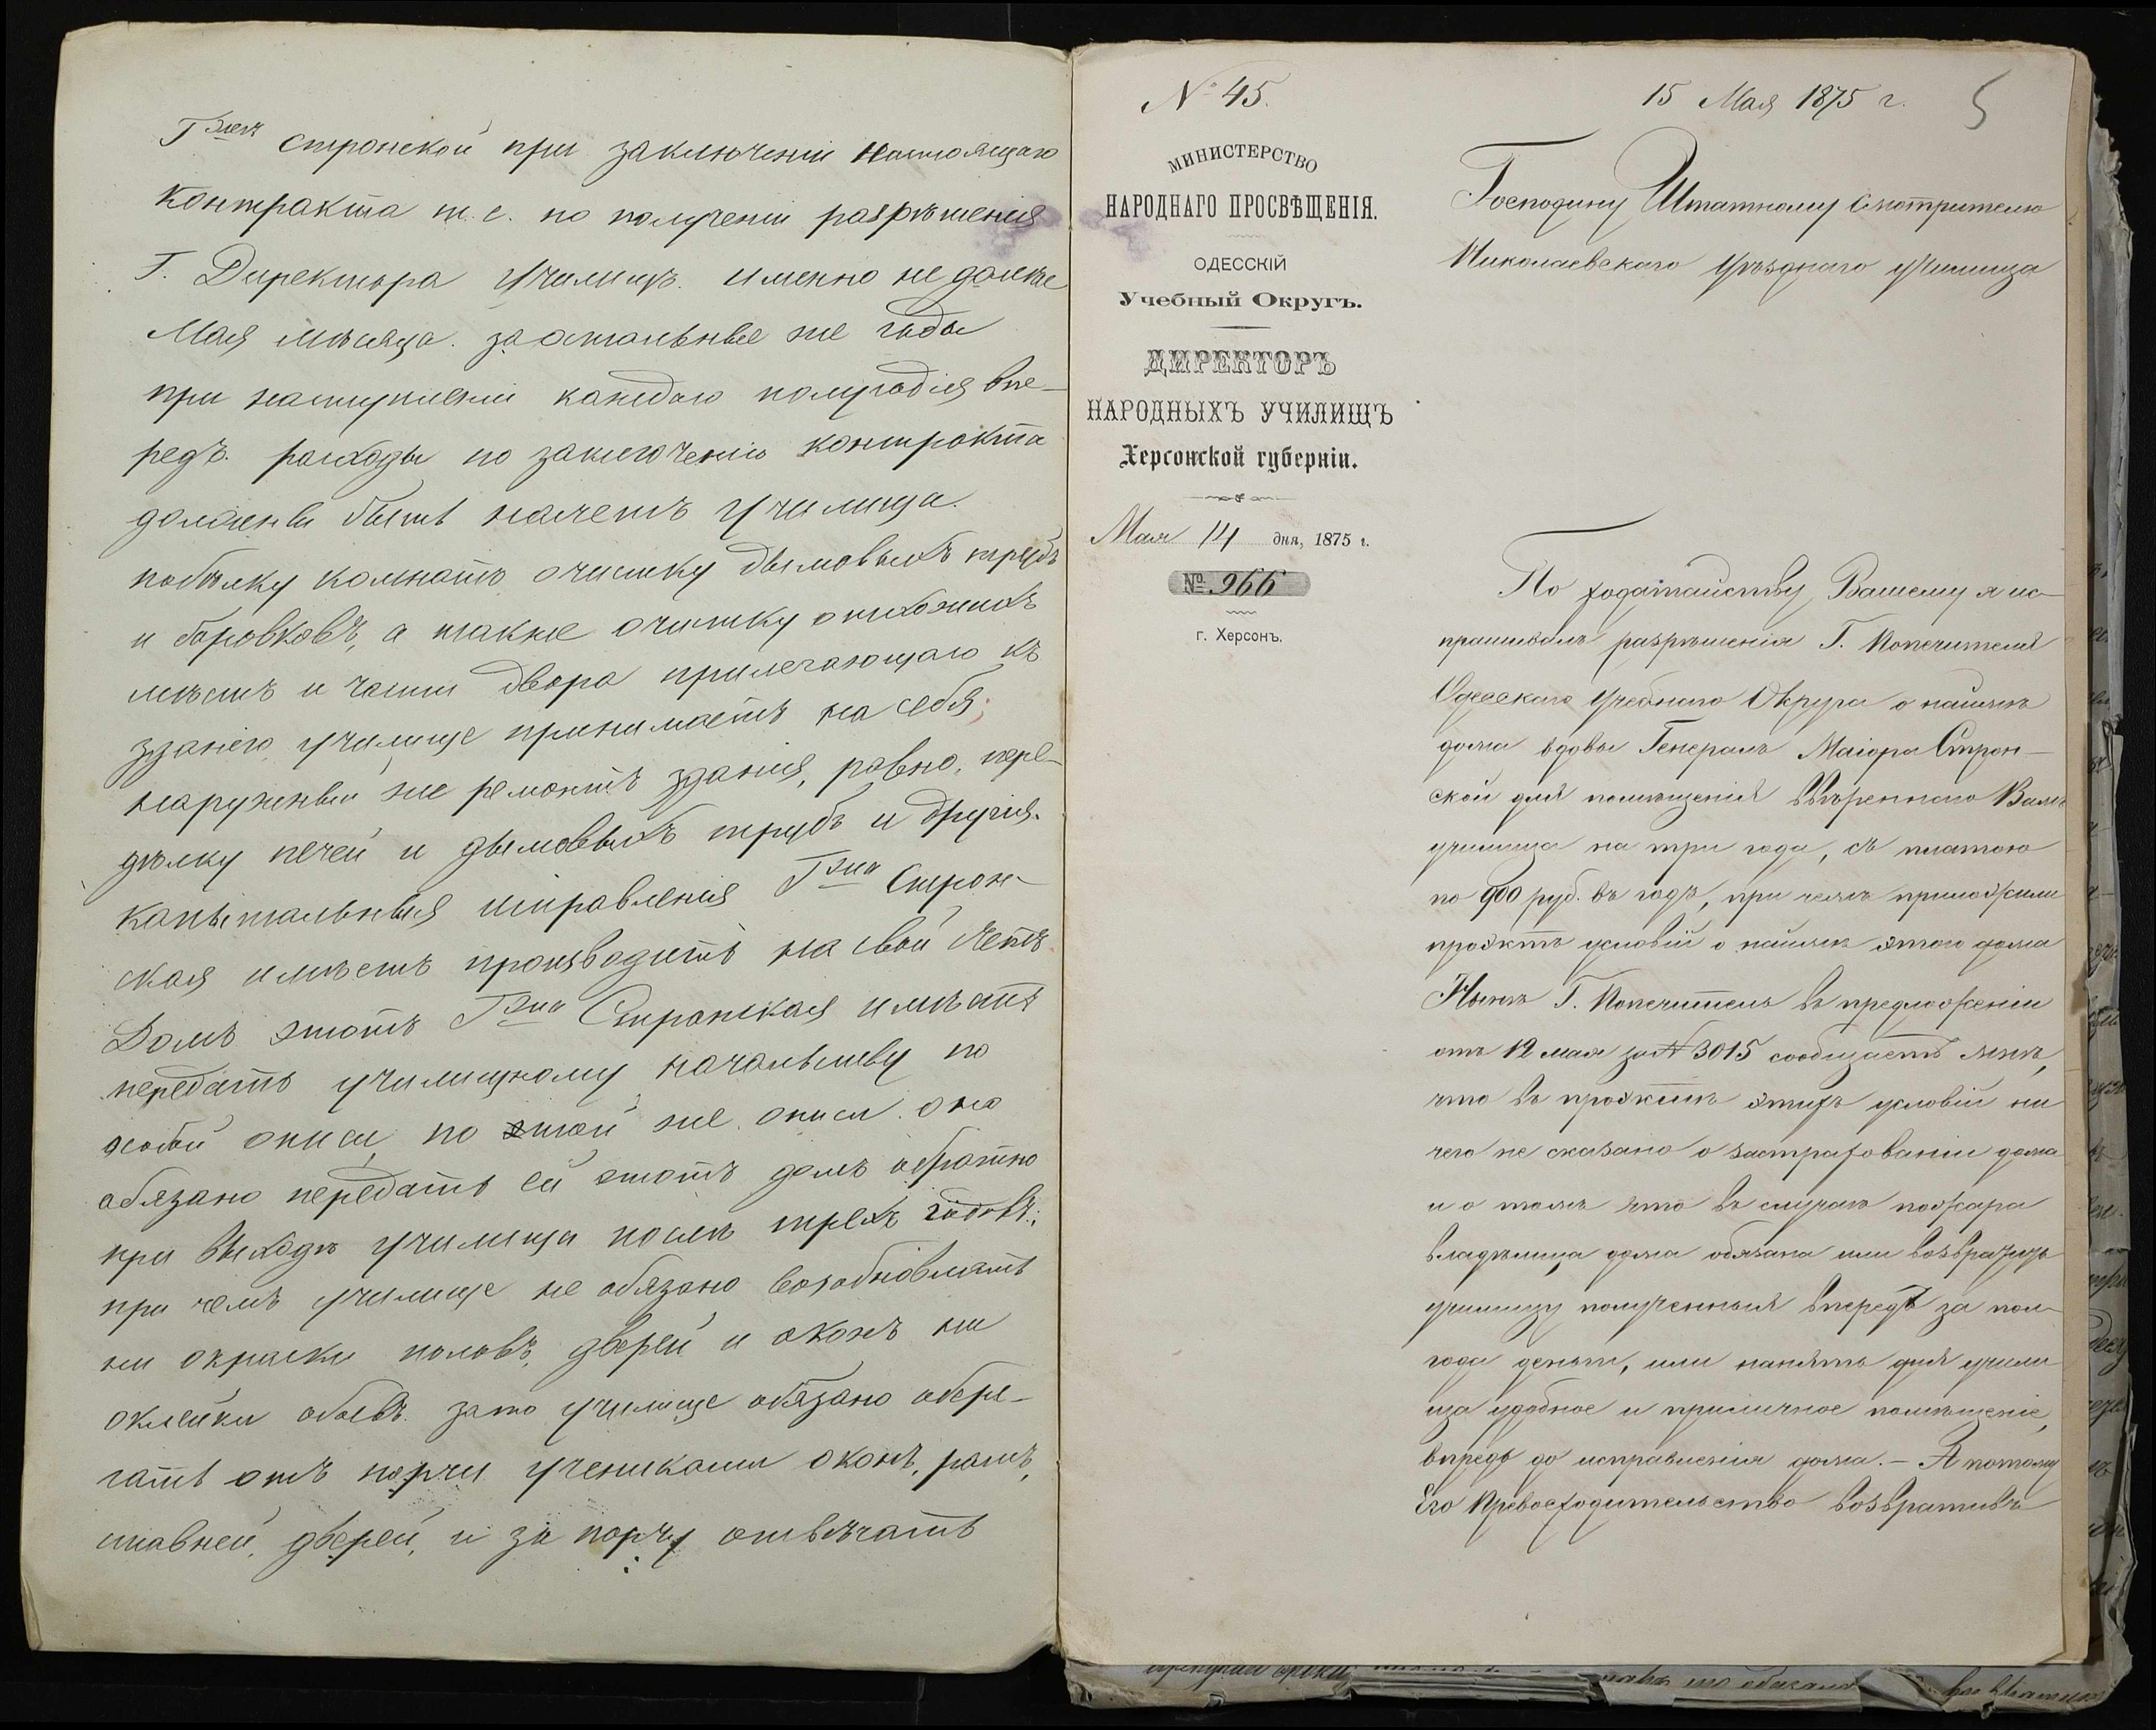 Г-жею Стронской при заключеніи настоящаго
контракта т. е. по полученіи разрѣшенія
Г. Директора училищъ. именно не далѣе
Мая мѣсяца. за остальные же годы
при наступленіи каждаго полугодія впе-
редъ. расходы по заключенію контракта
должны быть насчетъ училища.
побѣлку комнатъ очистку дымовыхъ трубъ
и боровковъ, а также очистку отхожихъ
мѣстъ и части двора прилегающаго къ
зданію училище принимаетъ на себя;
наружный же ремонтъ зданія, равно, пере-
дѣлку печей и дымовыхъ трубъ и другія.
капытальныя исправленія Г-жа Строн-
ская имѣетъ производить на свой счетъ.
Домъ этотъ Г-жа Стронская имѣетъ
передать училищному начальству по
особой описи, по этой же описи оно
обязано передать ей этотъ домъ обратно
при выходѣ училища послѣ трехъ годовъ;
при чемъ училище не обязано возобновлять
ни окраски половъ, дверей и оконъ ни
оклейки обоевъ. зато училище обязано обере-
гать отъ порчи учениками оконъ, рамъ,
ставней, дверей, и за порчу отвѣчать
№ 45.
15 Мая 1875 г.
5
МИНИСТЕРСТВО
НАРОДНАГО ПРОСВѢЩЕНІЯ.
ОДЕССКІЙ
Учебный Округъ.
ДИРЕКТОРЪ
НАРОДНЫХЪ УЧИЛИЩЪ
Херсонской губерніи.
Мая 14 дня, 1875 г.
№ 966
г. Херсонъ.
Господину Штатному Смотрителю
Николаевскаго Уѣзднаго училища
По ходатайству Вашему я ис-
прашивалъ разрѣшенія Г. Попечителя
Одесскаго Учебнаго Округа о наймѣ
дома вдовы Генералъ Маіора Строн-
ской для помѣщенія ввѣреннаго Вамъ
училища на три года, съ платою
по 900 руб. въ годъ, при чемъ приложили
проэктъ условій о наймѣ этого дома
Нынѣ Г. Попечитель въ предложеніи
отъ 12 мая за № 3015 сообщаетъ мнѣ,
что въ проэктѣ этихъ условій ни
чего не сказано о застрахованіи дома
и о томъ что въ случаѣ пожара
владѣлица дома обязана или возвратить
училищу полученныя впередъ за пол-
года деньги, или нанять для учили
ща удобное и приличное помѣщеніе,
впредь до исправленія дома. – А потому
Его Превосходительство возвративъ